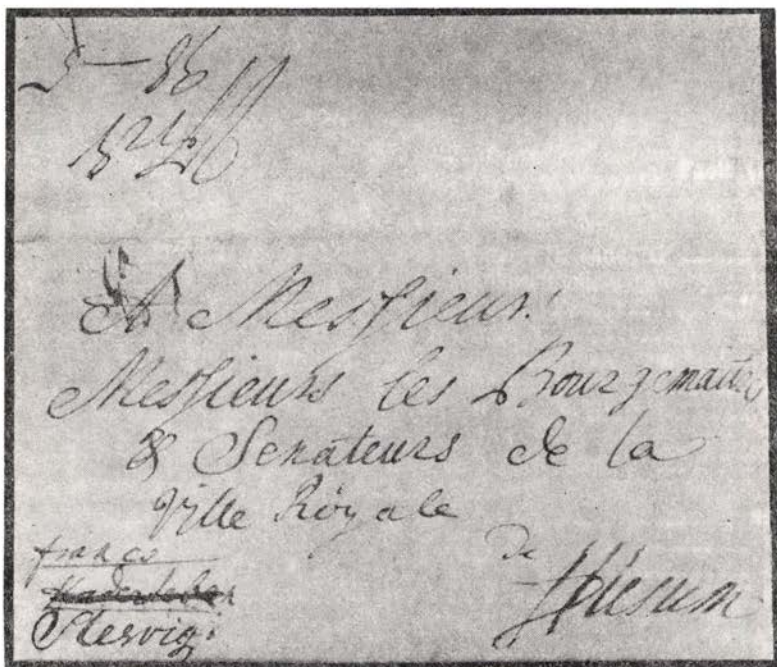 86
A Messieurs
Messieurs les Bourgemaitres
& Senateurs de la
Ville Royale
de
Husum
franco
Slesvig